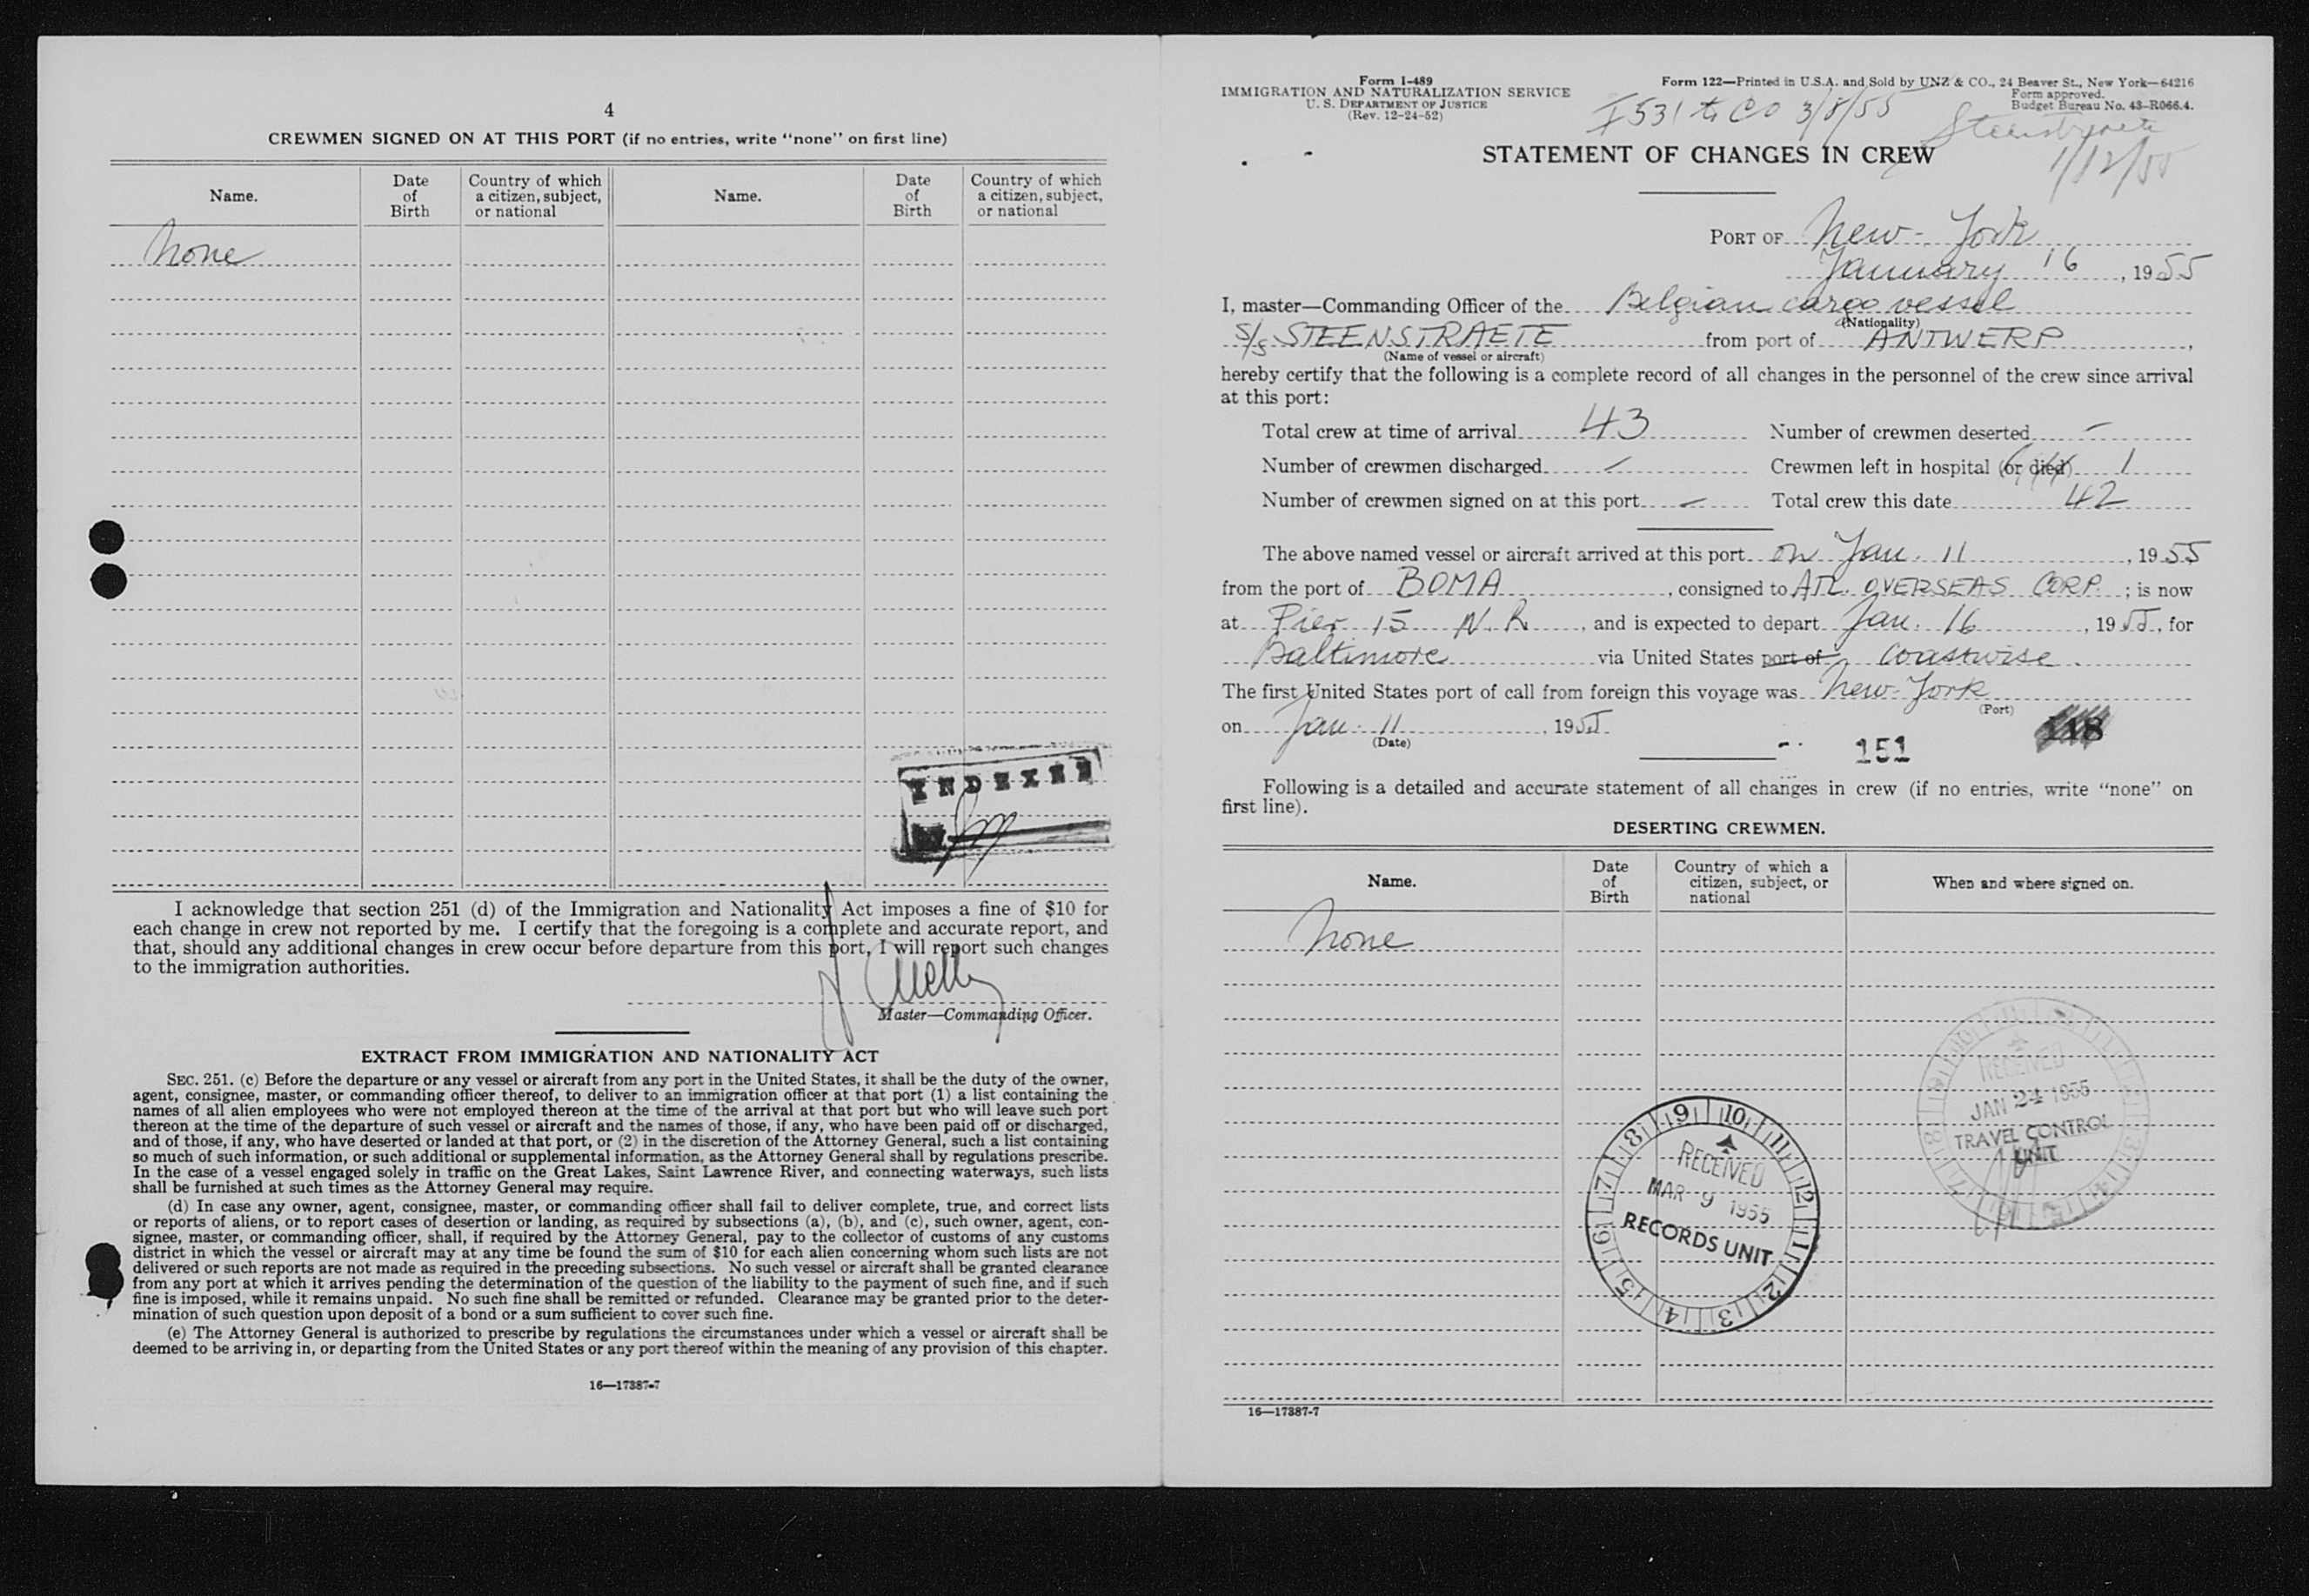 4
CREWMEN SIGNED ON AT THIS PORT (if no entries, write "none" on first line)
Name.
Date of Birth
Country of which a citizen, subject, or national
Name.
Date of Birth
Country of which a citizen, subject, or national
None
INDEXED
I acknowledge that section 251 (d) of the Immigration and Nationality Act imposes a fine of $10 for
each change in crew not reported by me. I certify that the foregoing is a complete and accurate report, and
that, should any additional changes in crew occur before departure from this port, I will report such changes
to the immigration authorities.
Master—Commanding Officer.
EXTRACT FROM IMMIGRATION AND NATIONALITY ACT
SEC. 251. (c) Before the departure or any vessel or aircraft from any port in the United States, it shall be the duty of the owner,
agent, consignee, master, or commanding officer thereof, to deliver to an immigration officer at that port (1) a list containing the
names of all alien employees who were not employed thereon at the time of the arrival at that port but who will leave such port
thereon at the time of the departure of such vessel or aircraft and the names of those, if any, who have been paid off or discharged,
and of those, if any, who have deserted or landed at that port, or (2) in the discretion of the Attorney General, such a list containing
so much of such information, or such additional or supplemental information, as the Attorney General shall by regulations prescribe.
In the case of a vessel engaged solely in traffic on the Great Lakes, Saint Lawrence River, and connecting waterways, such lists
shall be furnished at such times as the Attorney General may require.
(d) In case any owner, agent, consignee, master, or commanding officer shall fail to deliver complete, true, and correct lists
or reports of aliens, or to report cases of desertion or landing, as required by subsections (a), (b), and (c), such owner, agent, con-
signee, master, or commanding officer, shall, if required by the Attorney General, pay to the collector of customs of any customs
district in which the vessel or aircraft may at any time be found the sum of $10 for each alien concerning whom such lists are not
delivered or such reports are not made as required in the preceding subsections. No such vessel or aircraft shall be granted clearance
from any port at which it arrives pending the determination of the question of the liability to the payment of such fine, and if such
fine is imposed, while it remains unpaid. No such fine shall be remitted or refunded. Clearance may be granted prior to the deter-
mination of such question upon deposit of a bond or a sum sufficient to cover such fine.
(e) The Attorney General is authorized to prescribe by regulations the circumstances under which a vessel or aircraft shall be
deemed to be arriving in, or departing from the United States or any port thereof within the meaning of any provision of this chapter.
16—17387-7
Form I-489
IMMIGRATION AND NATURALIZATION SERVICE
U. S. DEPARTMENT OF JUSTICE
(Rev. 12-24-52)
Form 122—Printed in U.S.A. and Sold by UNZ & CO., 24 Beaver St., New York—64216
Form approved.
Budget Bureau No. 43-R066.4.
I 531 to CO 3/8/55
Steenstraete
1/12/55
STATEMENT OF CHANGES IN CREW
PORT OF New-York
January 16, 1955
I, master—Commanding Officer of the Belgian cargo vessel
(Nationality)
S/S STEENSTRAETE from port of ANTWERP,
(Name of vessel or aircraft)
hereby certify that the following is a complete record of all changes in the personnel of the crew since arrival
at this port:
Total crew at time of arrival 43 Number of crewmen deserted –
Number of crewmen discharged – Crewmen left in hospital (or died) 1
Number of crewmen signed on at this port – Total crew this date 42
The above named vessel or aircraft arrived at this port on Jan. 11, 1955
from the port of BOMA, consigned to ATL. OVERSEAS CORP.; is now
at Pier 15 N.R, and is expected to depart Jan. 16, 1955, for
Baltimore via United States port of coastwise.
The first United States port of call from foreign this voyage was New-York
(Port)
on Jan. 11, 1955.
(Date)
151
118
Following is a detailed and accurate statement of all changes in crew (if no entries, write "none" on
first line).
DESERTING CREWMEN.
Name.
Date of Birth
Country of which a citizen, subject, or national
When and where signed on.
None
RECEIVED
JAN 24 1955
TRAVEL CONTROL
UNIT
9 10 11 12 1 2 3 4 5 6 7 8
RECEIVED
MAR 9 1955
RECORDS UNIT
16—17387-7